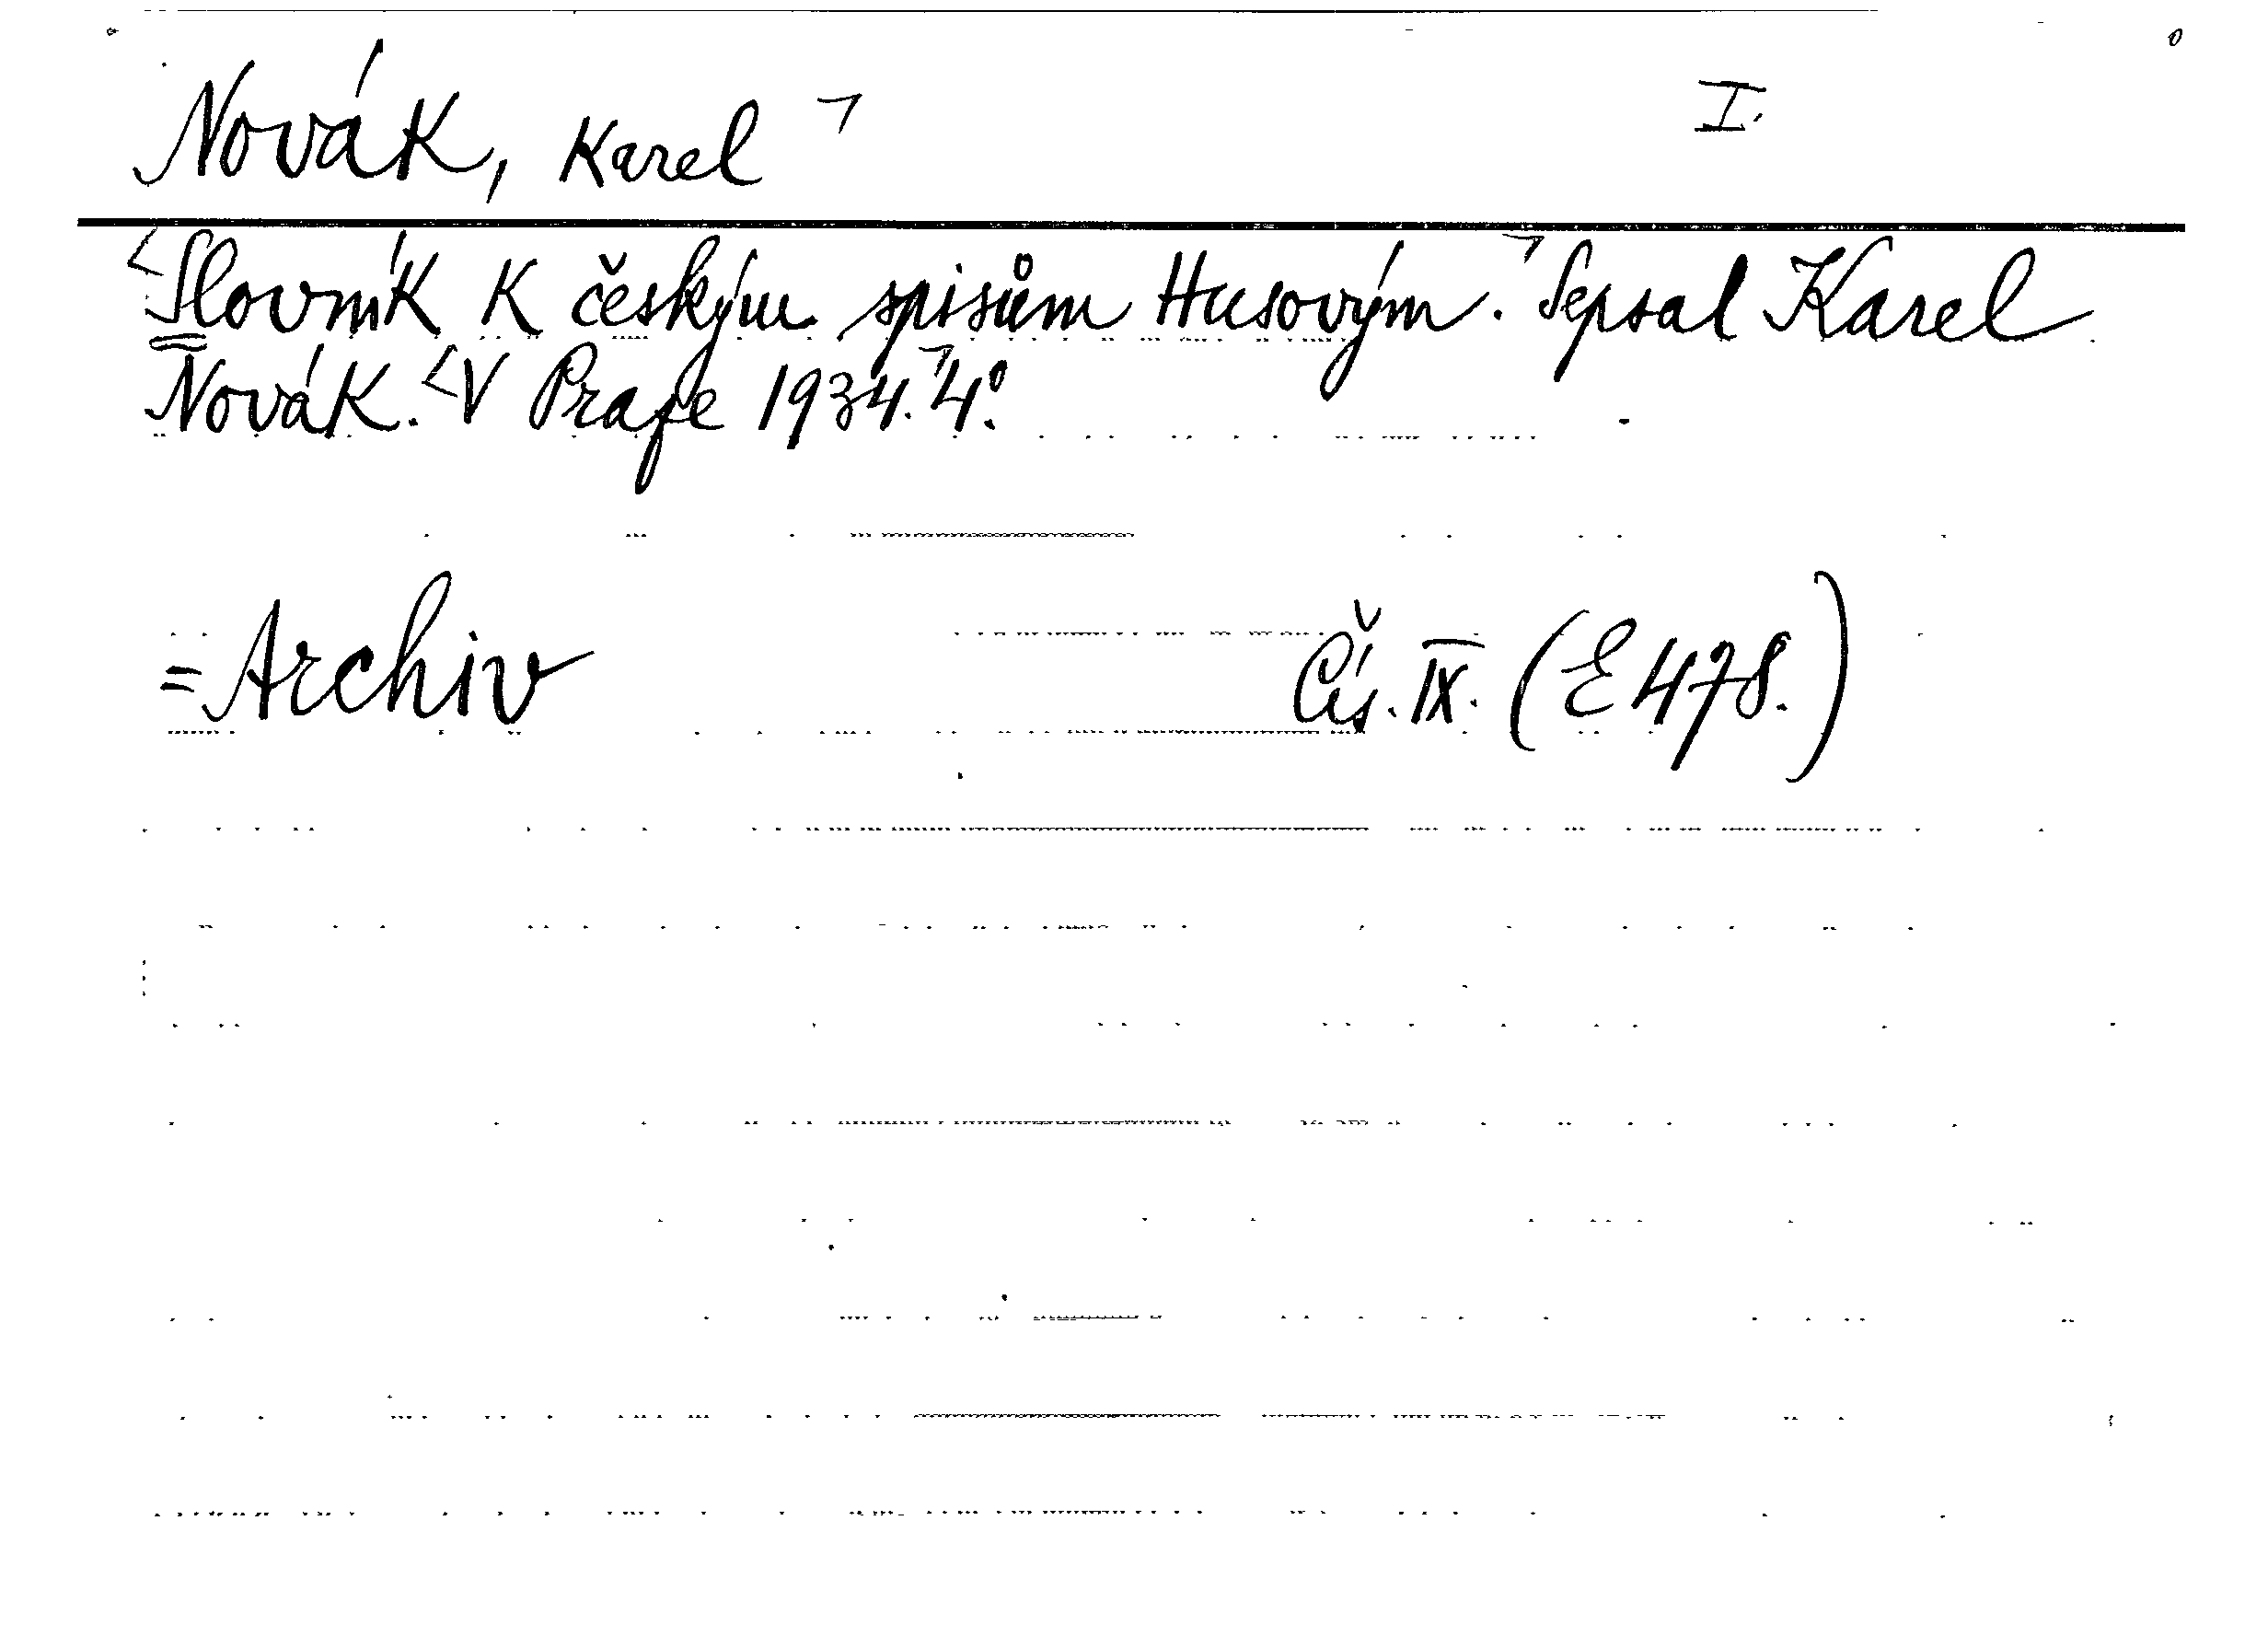 Novák, Karel ㄱ I.
<Slovník k českým spisům Husovým.ㄱ Sepsal Karel
Novák. <V Praze 1934.ㄱ 4º.
= Archiv Čís. IX. (E 478.)